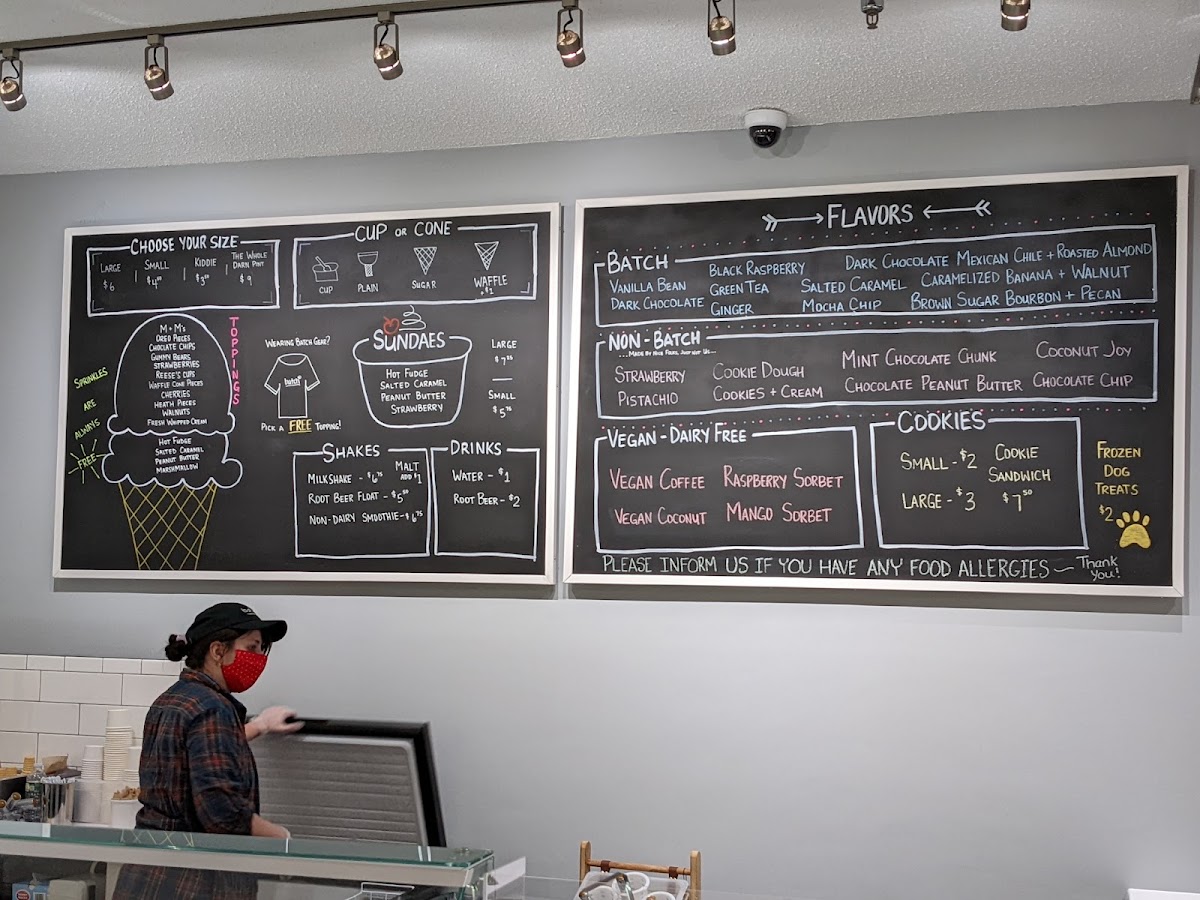 CHOOSE YOUR SIZE
LARGE
$6
SMALL
KIDDIE
THE WHOLE
DARN PINT
$9
CUP OR CONE
CUP
PLAIN
SUGAR
WAFFLE
+$1
M+M's
OREO PIECES
CHOCLATE CHIPS
GUMMY BEARS
STRAWBERRIES
REESE'S CUPS
WAFFLE CONE PIECES
CHERRIES
HEATH PIECES
WALNUTS
FRESH WHIPPED CREAM
HOT FUDGE
SALTED CARAMEL
PEANUT BUTTER
MARSHMALLOW
TOPPINGS
SPRINKLES
ARE
ALWAYS
FREE
WEARING BATCH GEAR?
batch
PICK A FREE TOPPING!
SUNDAES
HOT FUDGE
SALTED CARAMEL
PEANUT BUTTER
STRAWBERRY
LARGE
$7.25
SMALL
$5.75
SHAKES
MILKSHAKE - $6.75
MALT
ADD $1
ROOT BEER FLOAT - $5.50
NON-DAIRY SMOOTHIE - $6.75
DRINKS
WATER - $1
ROOT BEER - $2
FLAVORS
BATCH
VANILLA BEAN
DARK CHOCOLATE
BLACK RASPBERRY
GREEN TEA
GINGER
DARK CHOCOLATE MEXICAN CHILE + ROASTED ALMOND
SALTED CARAMEL
CARAMELIZED BANANA + WALNUT
MOCHA CHIP
BROWN SUGAR BOURBON + PECAN
NON-BATCH
...MADE BY NICE FOLKS, JUST NOT US...
STRAWBERRY
PISTACHIO
COOKIE DOUGH
COOKIES + CREAM
MINT CHOCOLATE CHUNK
CHOCOLATE PEANUT BUTTER
COCONUT JOY
CHOCOLATE CHIP
VEGAN - DAIRY FREE
VEGAN COFFEE
RASPBERRY SORBET
VEGAN COCONUT
MANGO SORBET
COOKIES
SMALL - $2
LARGE - $3
COOKIE
SANDWICH
$7.50
FROZEN
DOG
TREATS
$2
PLEASE INFORM US IF YOU HAVE ANY FOOD ALLERGIES ~ Thank
you!